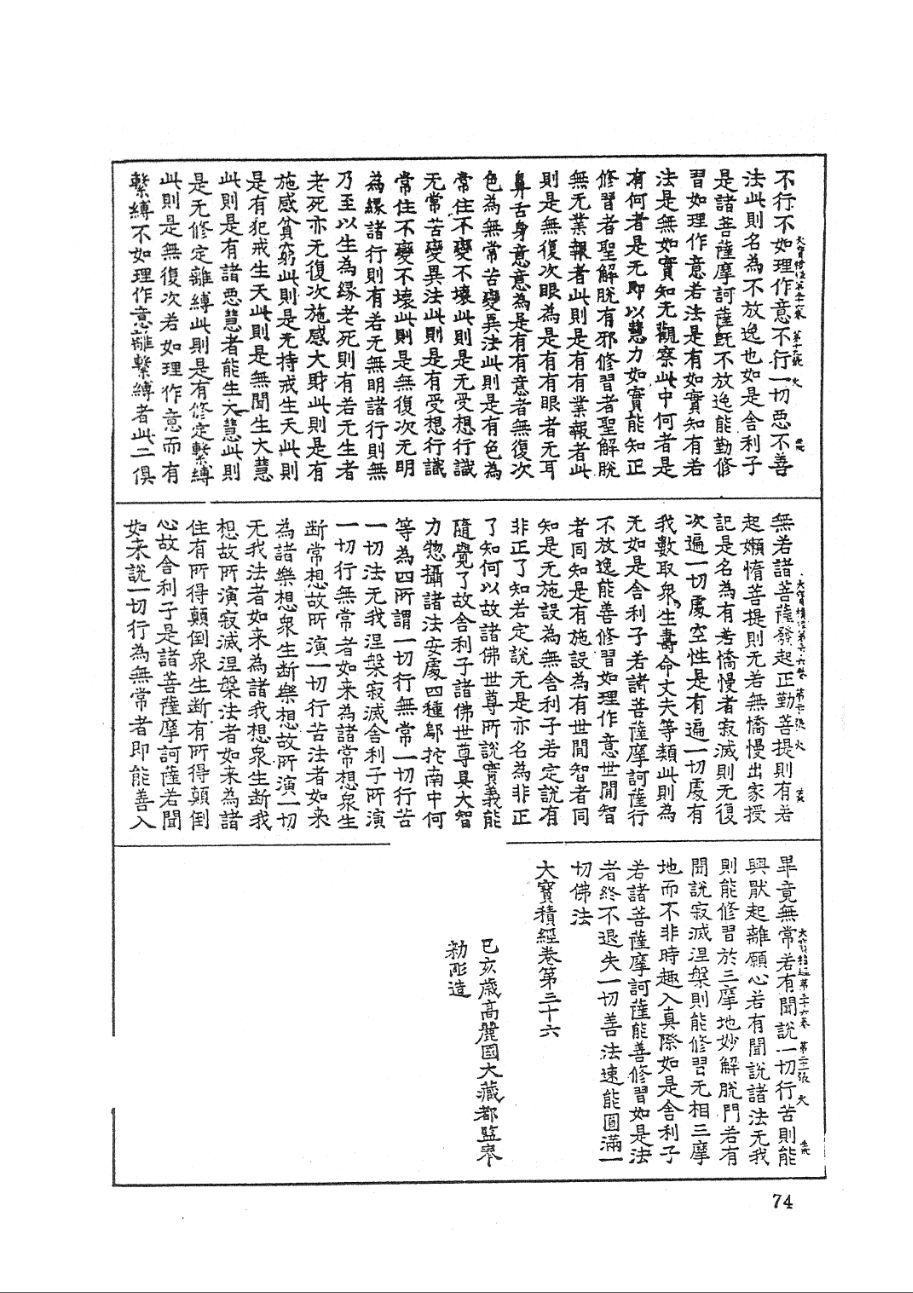 不行不如理作意不行一切惡不善
法此則名為不放逸也如是舍利子
是諸菩薩摩訶薩旣不放逸能勤修
習如理作意若法是有如實知有若
法是無如實知无觀察此中何者是
有何者是无即以慧力如實能知正
修習者聖解脫有邪修習者聖解脫
無无業報者此則是有有業報者此
則是無復次眼為是有有眼者无耳
鼻舌身意意為是有有意者無復次
色為無常苦變異法此則是有色為
常住不變不壞此則是无受想行識
无常苦變異法此則是有受想行識
常住不變不壞此則是無復次无明
為緣諸行則有若无無明諸行則無
乃至以生為緣老死則有若无生者
老死亦无復次施感大財此則是有
施感貧窮此則是无持戒生天此則
是有犯戒生天此則是無聞生大慧
此則是有諸惡慧者能生大慧此則
是无修定離縛此則是有修定繫縛
此則是無復次若如理作意而有
繫縛不如理作意離繫縛者此二俱
大寶積經第三十六卷 第張 火
無若諸菩薩發起正勤菩提則有若
起嬾惰菩提則无若無憍慢出家授
記是名為有若憍慢者寂滅則无復
次遍一切處空性是有遍一切處有
我數取衆生壽命丈夫等類此則為
无如是舍利子若諸菩薩摩訶薩行
不放逸能善修習如理作意世間智
者同知是有施設為有世間智者同
知是无施設為無舍利子若定說有
非正了知若定說无是亦名為非正
了知何以故諸佛世尊所說實義能
隨覺了故舍利子諸佛世尊具大智
力惣攝諸法安處四種鄔柁南中何
等為四所謂一切行無常一切行苦
一切法无我涅槃寂滅舍利子所演
一切行無常者如來為諸常想衆生
断常想故所演一切行苦法者如来
為諸樂想衆生断樂想故所演一切
无我法者如来為諸我想衆生断我
想故所演寂滅涅槃法者如来為諸
住有所得顛倒衆生断有所得顛倒
心故舍利子是諸菩薩摩訶薩若聞
如来說一切行為無常者即能善入
大寶積經第三十六卷 第張 火
畢竟無常若有聞說一切行苦則能
興猒起離願心若有聞說諸法无我
則能修習於三摩地妙解脫門若有
聞說寂滅涅槃則能修習无相三摩
地而不非時趣入真際如是舍利子
若諸菩薩摩訶薩能善修習如是法
者終不退失一切善法速能圓滿一
切佛法
大寶積經卷第三十六
己亥歲高麗國大藏都監奉
勑彫造
74